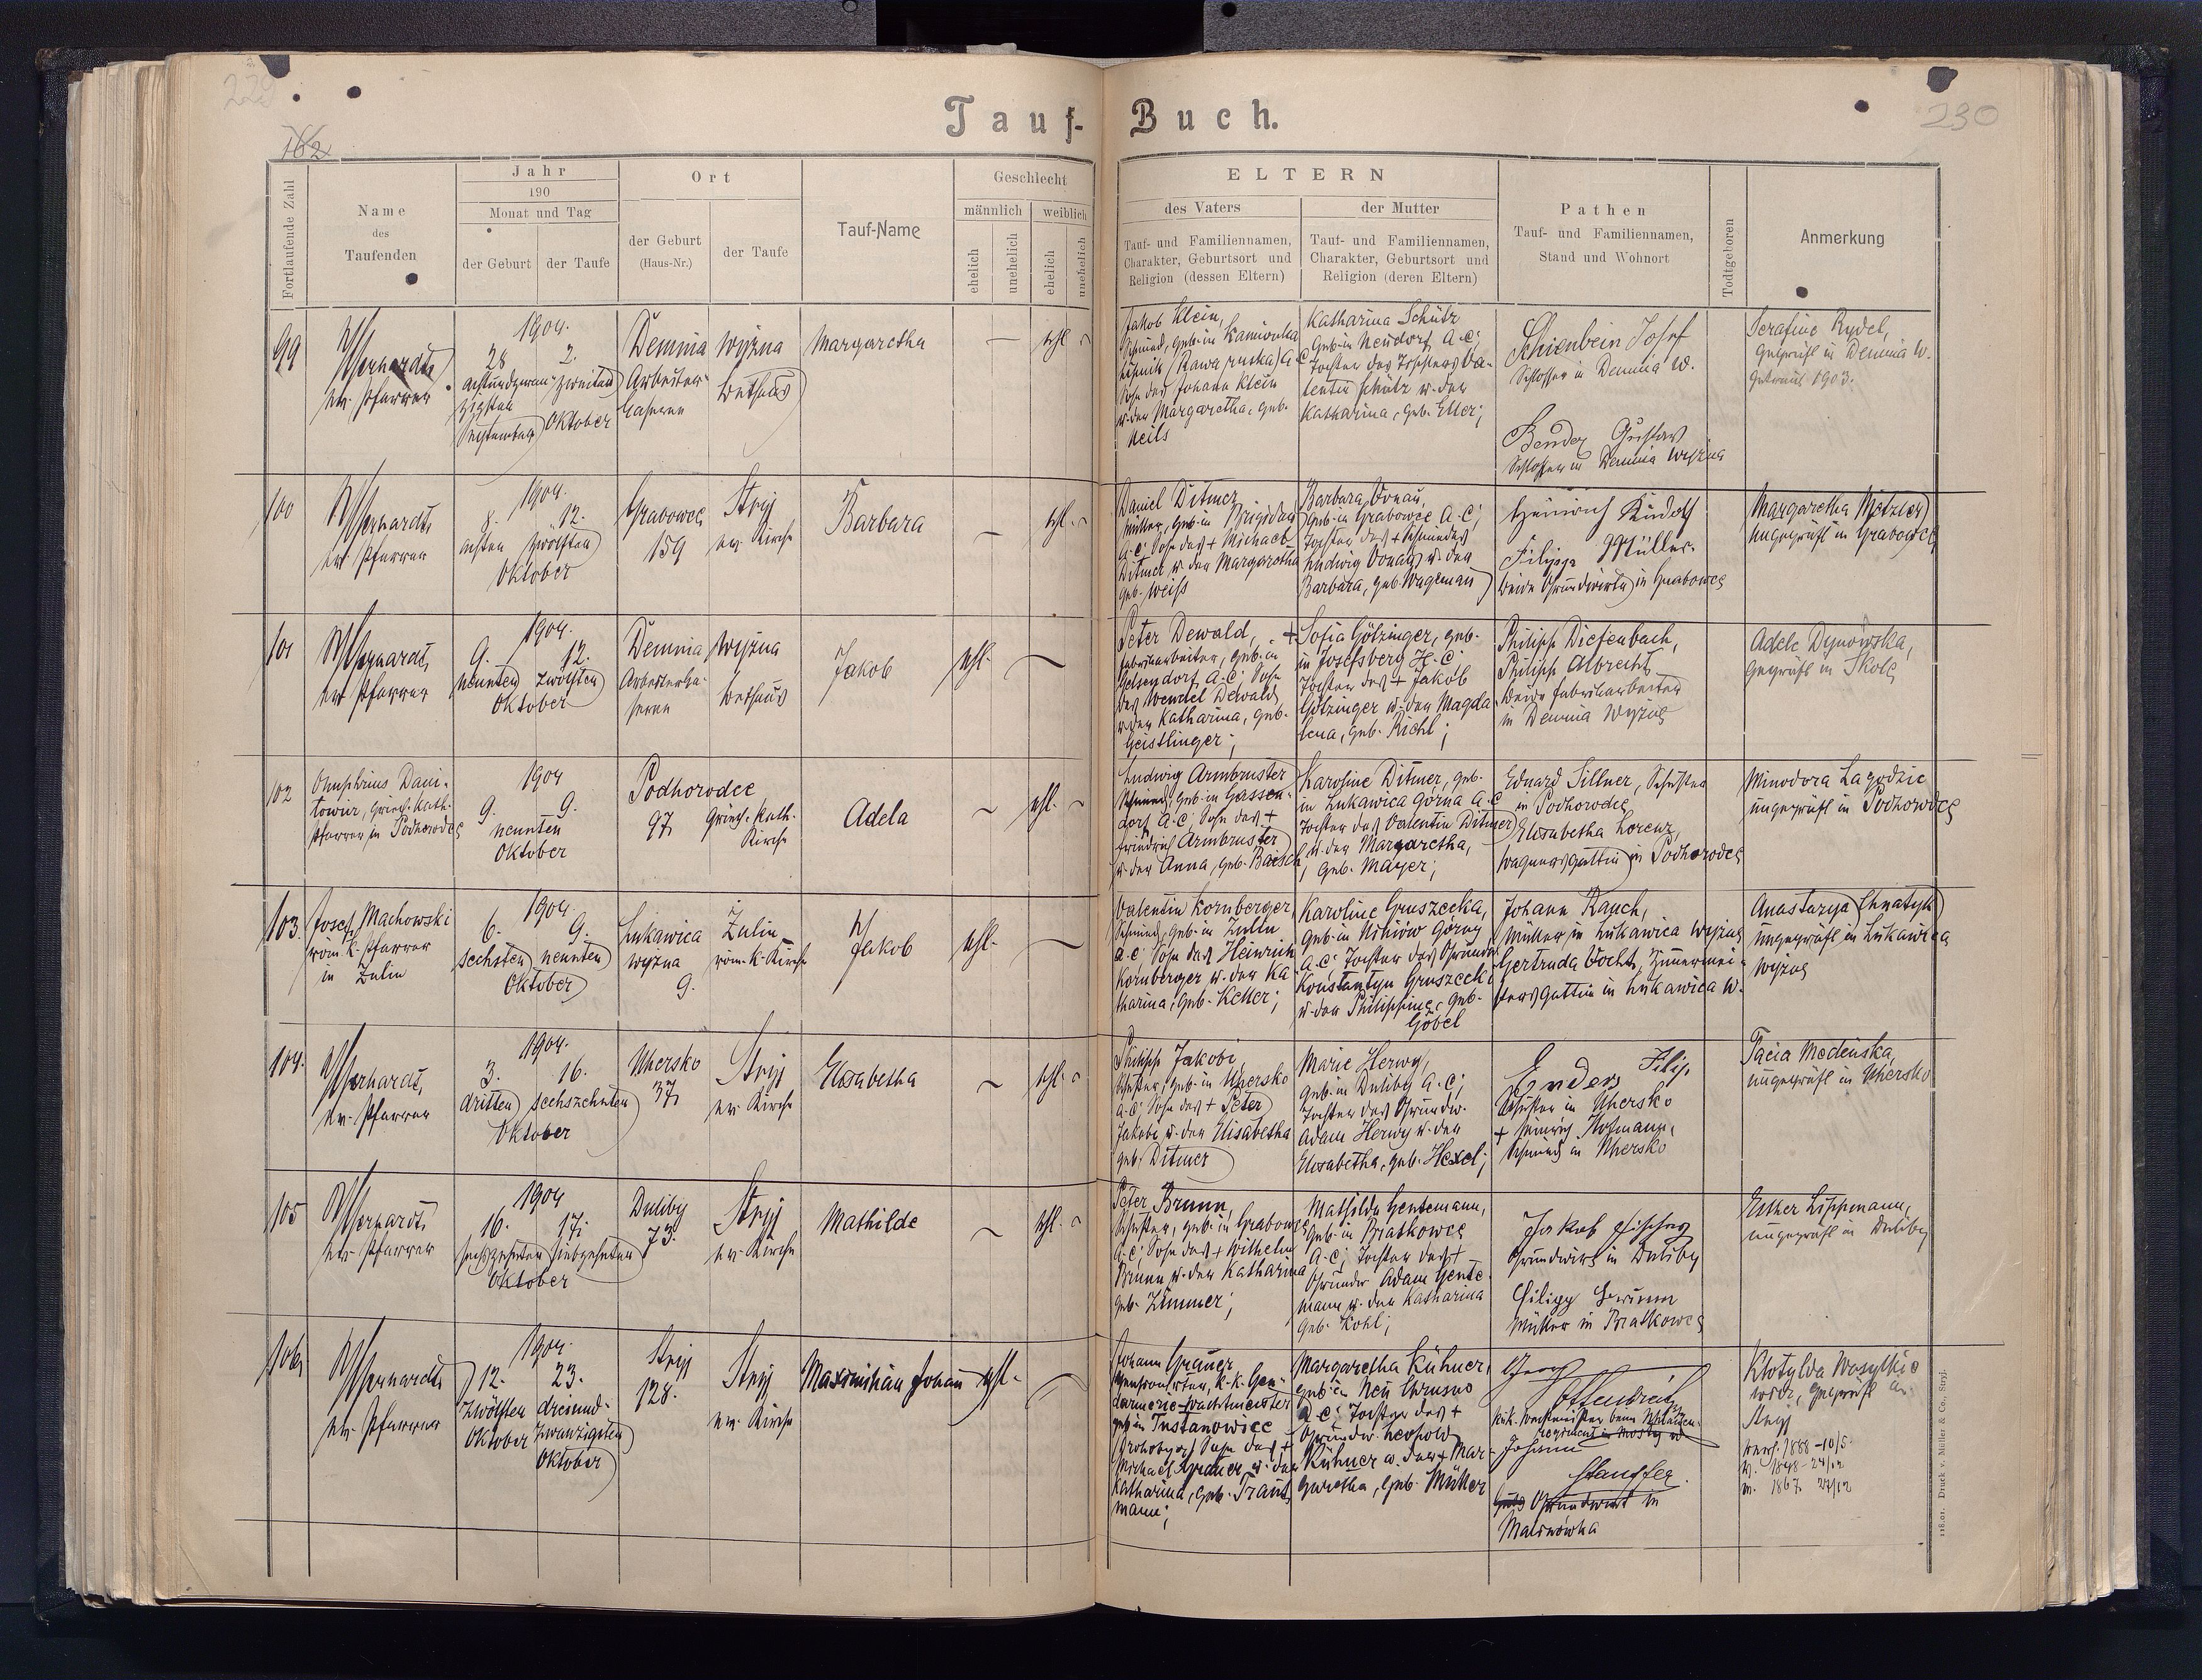 229
230
162
Tauf-Buch.
Fortlaufende Zahl
Name
des
Taufenden
Jahr
190
Monat und Tag
der Geburt
der Taufe
Ort
der Geburt
(Haus-Nr.)
der Taufe
Tauf-Name
Geschlecht
männlich
weiblich
ehelich
unehelich
ehelich
unehelich
ELTERN
des Vaters
Tauf- und Familiennamen,
Charakter, Geburtsort und
Religion (dessen Eltern)
der Mutter
Tauf- und Familiennamen,
Charakter, Geburtsort und
Religion (deren Eltern)
Pathen
Tauf- und Familiennamen,
Stand und Wohnort
Todtgeboren
Anmerkung
99
ev. Pfarrer
1904.
28
achtundzwan-
zigsten
September
2.
zweiten
Oktober
Demnia wyżna
Arbeiter-
Caserne
Bethaus
Margaretha
ehl.
Jakob Klein,
Schmied, geb. in Kamionka
(Rawa ruska) A.C.
Sohn des Johann Klein
u. der Margaretha, geb.
Neils
Katharina Schütz
geb. in Neudorf A.C;
Tochter des Va-
lentin Schütz u. der
Katharina, geb. Eller;
Schienbein Josef
Schlosser in Demnia W.
Bender Gustav
Schlosser in Demnia Wyżna
Serafine Rydel,
geprüft in Demnia W.
getraut 1903.
100
ev. Pfarrer
1904.
8.
achten
12.
zwölften
Oktober
Grabowce
159
Stryj
ev. Kirche
Barbara
ehl.
Daniel Ditmer
Müller, geb. in Brigidau
A.C; Sohn des + Michael
Ditmer u. der Margaretha
geb. Weiss
Barbara Donau,
geb. in Grabowce A.C;
Tochter des + Schmiedes
Ludwig Donau u. der
Barbara, geb. Wageman
Heinrich Rudolf
Filipp Müller.
beide Grundwirte in Grabowce
Margaretha Metzler
ungeprüft in Grabowce
101
ev. Pfarrer
1904.
9.
neunten
12.
zwölften
Oktober
Demnia wyżna
Arbeiterka-
serne
Bethaus
Jakob
ehl.
Peter Dewald,
Fabriksarbeiter, geb. in
Gelsendorf A.C; Sohn
des Wendel Dewald,
u. der Katharina, geb.
Geistlinger;
+ Sofia Götzinger, geb.
in Josefsberg H.C;
Tochter des + Jakob
Götzinger u. der Magda-
lena, geb. Richl;
Philipp Diefenbach,
Philipp Albrecht,
beide Fabriksarbeiter
in Demnia Wyżna
Adele Dynowska,
geprüft in Skole
102
Onuphrius Dani-
towicz, griech. kath.
Pfarrer in Podhorodce
1904
9.
9.
neunten
Oktober
Podhorodce
97
griech. kath.
Kirche
Adela
ehl.
Ludwig Armbruster
Schmied, geb. in Gassen-
dorf A.C; Sohn des +
Friedrich Armbruster
u. der Anna, geb. Baisch
Karoline Ditmer, geb.
in Lukawica górna A.C
Tochter des Valentin Ditmer
u. der Margaretha,
geb. Mayer;
Eduard Sillner, Schuster
in Podhorodce,
Elisabetha Lorenz,
Wagnersgattin in Podhorodce
Minodora Lagodzic
ungeprüft in Podhorodce
103.
Josef Machowski
röm. k. Pfarrer
in Zulin
1904.
6.
sechsten
9.
neunten
Oktober
Lukawica
wyżna
9.
Żulin
röm. k. Kirche
Jakob
ehl.
Valentin Kornberger,
Schmied, geb. in Zulin
A.C; Sohn des Heinrich
Kornberger u. der Ka-
tharina, geb. Keller;
Karoline Gruszecka,
geb. in Górny
A.C; Tochter des Grundw.
Konstantyn Gruszecki
u. der Philippine, geb.
Göbel
Johann Rauch,
Müller in Lukawica wyżna
Gertruda Vocht, Zimermei-
stersgattin in Lukawica W.
Anastazya Chnatyk
ungeprüft in Lukawica
wyżna
104.
ev. Pfarrer
1904.
3.
dritten
16.
sechszehnten
Oktober
Uhersko
37
Stryj
ev. Kirche
Elisabetha
ehl.
Philipp Jakobi,
Schuster, geb. in Uhersko
A.C; Sohn des + Peter
Jakobi u. der Elisabetha
geb. Ditmer
Marie Herwy,
geb. in Duliby A.C;
Tochter des Grundw.
Adam Herwy u. der
Elisabetha, geb. Hexel;
Enders Filip.
Schuster in Uhersko
+ Heinrich Hofmann,
Schmied in Uhersko
Tacia Medeńska,
ungeprüft in Uhersko
105
ev. Pfarrer
1904
16.
sechszehnten
17.
siebzehnten
Oktober
Duliby
73.
Stryj
ev. Kirche
Mathilde
ehl.
Peter Brunn,
Schuster, geb. in Grabowce
A.C; Sohn des + Wilhelm
Brunn u. der Katharina
geb. Zimmer;
Mathilde Gentemann,
geb. in Bratkowce
A.C; Tochter des +
Grundw. Adam Gente-
mann u. der Katharina
geb. Kohl;
Jakob Fischer
Grundwirt in Duliby
Filipp
Müller in Bratkowce
Esther Lippmann,
ungeprüft in Duliby
106
ev. Pfarrer
1904.
12.
zwölften
Oktober
23.
dreiund-
zwanzigsten
Oktober
Stryj
128.
Stryj
ev. Kirche
Maximilian Johan
ehl.
Johann Grauer,
pensionirter, k.k. Gen-
darmerie-Wachtmeister
geb. in Tustanowice
Drohobycz, Sohn des +
Michael Grauer, u. der
Katharina, geb. Traut-
mann;
Margaretha Kühner,
geb. in Neu Chrusno
A.C; Tochter des +
Grundw. Leopold
Kühner u. der + Mar-
garetha, geb. Müller
Georg
k.k. Wachtmeister beim
Regiment in
Johann
Stauffer.
Grundwirt in
Malinówka
Klotylda Wasylkie-
wicz, geprüft in
Stryj
1888-10/5.
1848-24/12
m. 1867 27/12
118.01. Druck v. Müller & Co., Stryj.